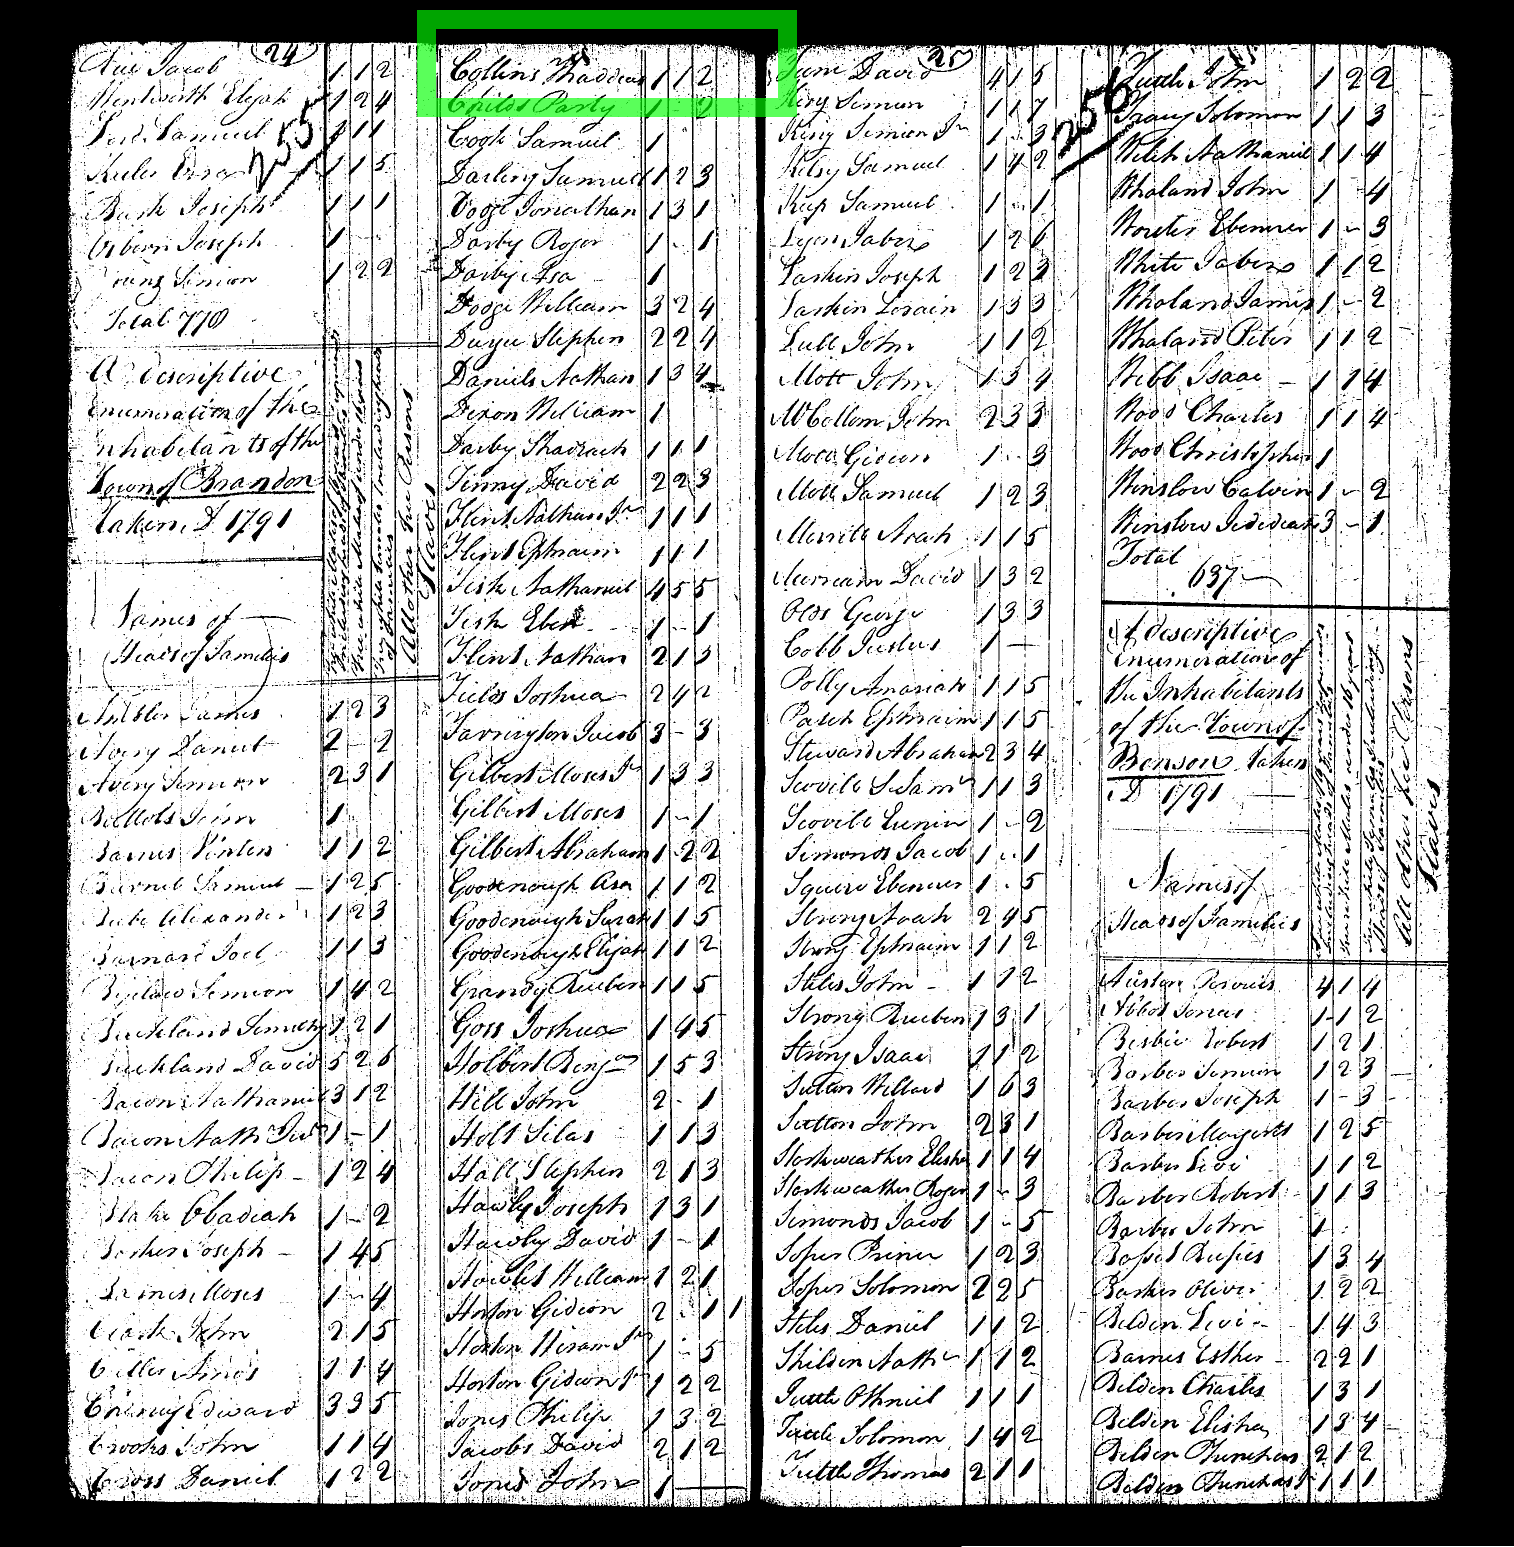 24
Jacob 1 1 2
Wentworth Elijah 1 2 4
Samuel 1 1
255
1 1 5
Bush Joseph 1 1 1
Osborn Joseph 1 - -
Simeon 1 2 2
Total 770
A descriptive
enumeration of the
inhabitants of the
Town of Brandon
taken D 1791
Names of
Heads of Families
All other free Persons
Slaves
James 1 2 3
Avery Daniel 2 - 2
Avery Simeon 2 3 1
1
Barnes 1 1 2
Barnet Samuel 1 2 5
Alexander 1 2 3
Barnard Joel 1 1 3
Bigelow Simeon 1 4 2
Buckland Timothy 1 2 1
Buckland David 5 2 6
Bacon Nathaniel 3 1 2
Bacon Nathl Junr 1 - 1
Bacon Philip 1 2 4
Blake Obadiah 1 - 2
Barker Joseph 1 4 5
Barnes Moses 1 - 4
Clark John 2 1 5
Cutler Amos 1 1 4
Cheney Edward 3 3 5
Crooks John 1 1 4
Cross Daniel 1 2 2
Collins Thaddeus 1 1 2
Childs Party 1 - 2
Cogh Samuel 1
Darling Samuel 1 2 3
Dodge Jonathan 1 3 1
Darby Roger 1 - 1
Darby Asa 1
Dodge William 3 2 4
Stephen 2 2 4
Daniels Nathan 1 3 4
Dixon William 1
Darby Shadrach 1 1 1
Finny David 2 2 3
Flint Nathan Jr 1 1 1
Flint Ephraim 1 1 1
Fisk Nathaniel 4 5 5
Fisk Eben 1 - 1
Flint Nathan 2 1 3
Fields Joshua 2 4 2
Farrington Jacob 3 - 3
Gilbert Moses Jr 1 3 3
Gilbert Moses 1 - 1
Gilbert Abraham 1 2 2
Goodenough Asa 1 1 2
Goodenough Sarah 1 1 5
Goodenough Elijah 1 1 2
Grandy Reuben 1 1 5
Goss Joshua 1 4 5
Holbert Benjn 1 5 3
Hill John 2 - 1
Holt Silas 1 1 3
Hall Stephen 2 1 3
Hawly Joseph 1 3 1
Hawly David 1 - 1
William 1 2 1
Horton Gideon 2 - 1 1
Horton Hiram Jr 1 - 5
Horton Gideon Jr 1 2 2
Jones Philip 1 3 2
Jacobs David 2 1 2
Jones John 1 -
25
256
David 4 1 5
King Simeon 1 1 7
King Simeon Jr 1 - 3
Kelsy Samuel 1 4 2
Samuel 1 - 1
Lyon Jabez 1 2 6
Larkin Joseph 1 2 3
Larkin Lorain 1 3 3
Lull John 1 1 2
Mott John 1 3 4
McCollom John 2 3 3
Mott Gideon 1 - 3
Mott Samuel 1 2 3
Merrite Noah 1 1 5
Merriam David 1 3 2
Olds George 1 3 3
Cobb Justus 1 -
Polly Amariah 1 1 5
Patch Ephraim 1 1 5
Steward Abraham 2 3 4
Scovile Saml 1 1 3
Scovile 1 - 2
Simonds Jacob 1 - 1
Squire Ebenezer 1 - 5
Strong Noah 2 4 5
Strong Ephraim 1 1 2
Stiles John 1 1 2
Strong Reuben 1 3 1
Strong Isaac 1 1 2
Sutton Willard 1 6 3
Sutton John 2 3 1
Starkweather Elisha 1 1 4
Starkweather Roger 1 - 3
Simonds Jacob 1 - 5
Soper Prince 1 2 3
Soper Solomon 2 2 5
Stiles Daniel 1 1 2
Shilden Nathl 1 1 2
Tuttle Othniel 1 1 1
Tuttle Solomon 1 4 2
Tuttle Thomas 2 1 1
Tuttle John 1 2 2
Tracy Solomon 1 1 3
Welch Nathaniel 1 1 4
Whaland John 1 - 4
Worster Ebenezer 1 - 3
White Jabez 1 1 2
Whaland James 1 - 2
Whaland Peter 1 1 2
Webb Isaac 1 1 4
Wood Charles 1 1 4
Wood Christopher 1
Winslow Calvin 1 - 2
Winslow Jedediah 3 - 1
Total
637
A descriptive
Enumeration of
the Inhabitants
of the Town of
Benson taken
D 1791
Names of
Heads of Families
All other free Persons
Slaves
Austin 4 1 4
Abbot Jonas 1 1 2
Robert 1 2 1
Barber Simeon 1 2 3
Barber Joseph 1 - 3
Barber 1 2 5
Barber Levi 1 1 2
Barber Robert 1 1 3
Barber John 1
Rufus 1 3 4
Barker Oliver 1 2 2
Belden Levi 1 4 3
Barnes Esther 2 2 1
Belden Charles 1 3 1
Belden Elisha 1 3 4
Belden 2 1 2
Belden 1 1 1